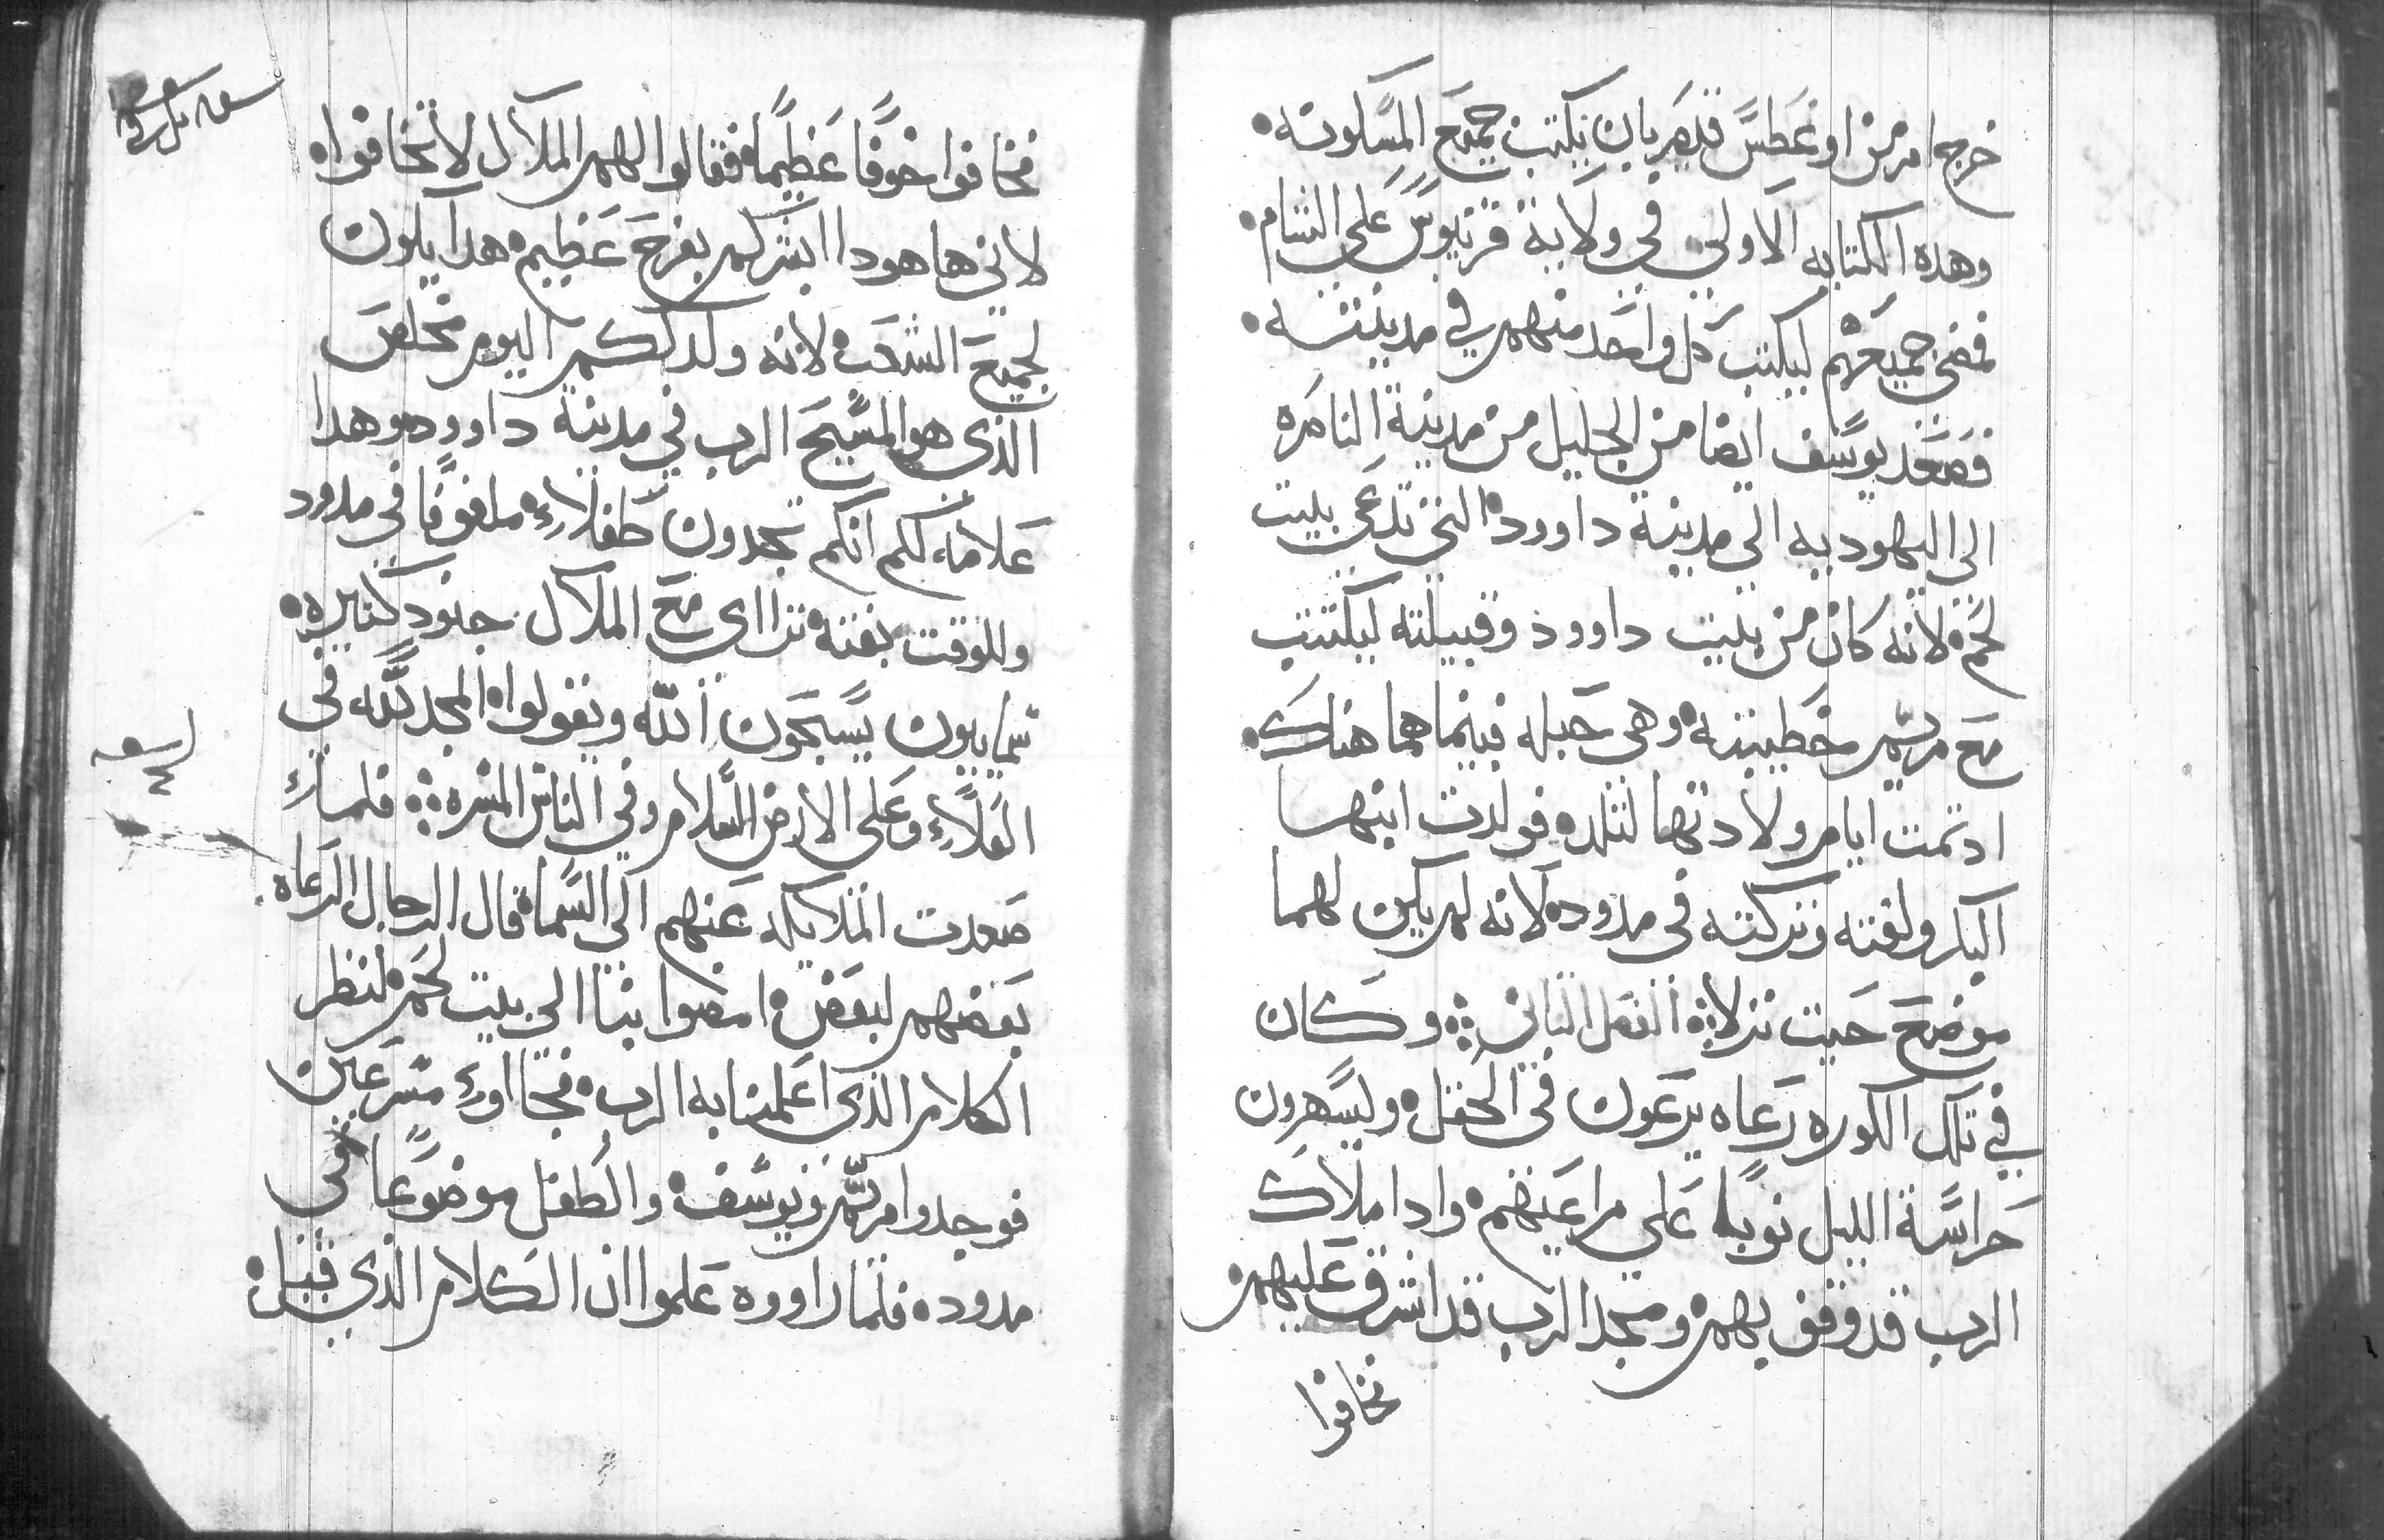 خرج امر من اوغسطس قيصر بان يكتب جميع المسكونه
وهده الكتابه الاولي في ولاية قرنيوس علي الشام
فمضي جميعهم ليكتب كل واحد منهم في مدينته
فصعد يوسف ايضا من الجليل من مدينة الناصره
الي اليهوديه الي مدينة داوود التي تدعي بيت
لحم لانه كان من بيت داوود وقبيلته ليكتتب
مع مريم خطيبته وهي حبله فبينما هما هناك
اد تمت ايام ولادتها لتلده فولدت ابنها
البكر ولفته وتركته في مدود لانه لم يكن لهما
موضع حيت نزلا الفصل التاني وكان
في تلك الكوره رعاه يرعون في الحقل ويسهرون
حراسة الليل نوبا علي مراعيهم وادا ملاك
الرب قد وقف بهم ومجد الرب قد اشرق عليهم
فخافوا
فخافوا خوفا عظيما فقالوا لهم الملاك لا تخافوا
لاني هاهودا ابشركم بفرح عظيم هدا يكون
لجميع الشعب لانه ولد لكم اليوم مخلص
الذي هو المسيح الرب في مدينة داوود وهدا
علامة لكم انكم تجدون طفلاء ملفوفا في مدود
وللوقت بغته تراا اى مع الملاك جنود كتيره
سماييون يسبحون الله ويقولوا المجد لله في
العلاء وعلى الارض السلام وفي الناس المسره فلماء
صعدت الملايكه عنهم الي السماء قال الرجال الرعاه
بعضهم لبعض امضوا بنا الي بيت لحم لننظر
الكلام الذي اعلمنا به الرب فجااوء مسرعين
فوجدوا مريم ويوسف والطفل موضوعا في
مدود فلما راووه علموا ان الكلام الذي قيل